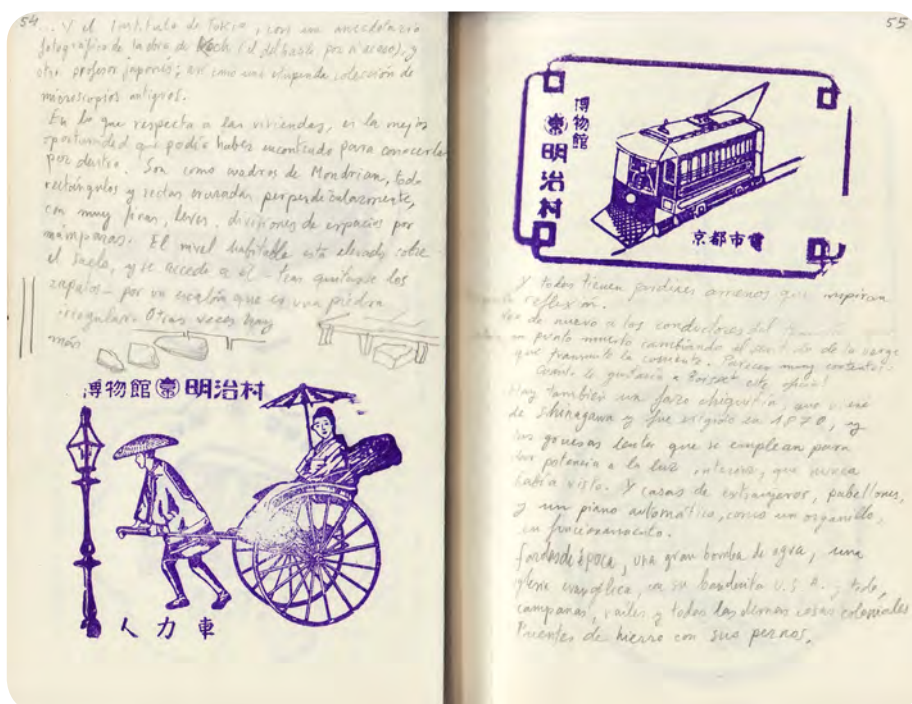 54
... y el Instituto de Tokio, con un anecdotario
fotográfico de la obra de Koch (el del bacilo por n acaso), y
otro profesor japonés; así como una estupenda colección de
microscopios antiguos.
En lo que respecta a las viviendas, es la mejor
oportunidad que podía haber encontrado para conocerlas
por dentro. Son como cuadros de Mondrian, todo
rectángulos y rectas cruzadas perpendicularmente,
con muy finas, leves, divisiones de espacios por
mamparas. El nivel habitable está elevado sobre
el suelo, y se accede a él – tras quitarse los
zapatos – por un escalón que es una piedra
irregular. Otras veces hay
más
博物館 明治村
人力車
55
博物館
明治村
京都市電
Y todos tienen jardines amenos que inspiran
reflexión.
de nuevo a los conductores del
en punto muerto cambiando el sentido de la verga
que transmite la corriente. Parecen muy contentos.
Cuánto le gustaría a este oficio!
Hay también un faro chiquitín, que viene
de Shinagawa y fue erigido en 1870, y
las gruesas lentes que se emplean para
dar potencia a la luz, interesa, que nunca
había visto. Y casas de extranjeros, pabellones,
y un piano automático, como un organillo,
en funcionamiento.
de época, una gran bomba de agua, una
evangélica, con su banderita U.S.A. y todo,
campanas, raíles y todas las demás cosas coloniales
Puentes de hierro con sus pernos.